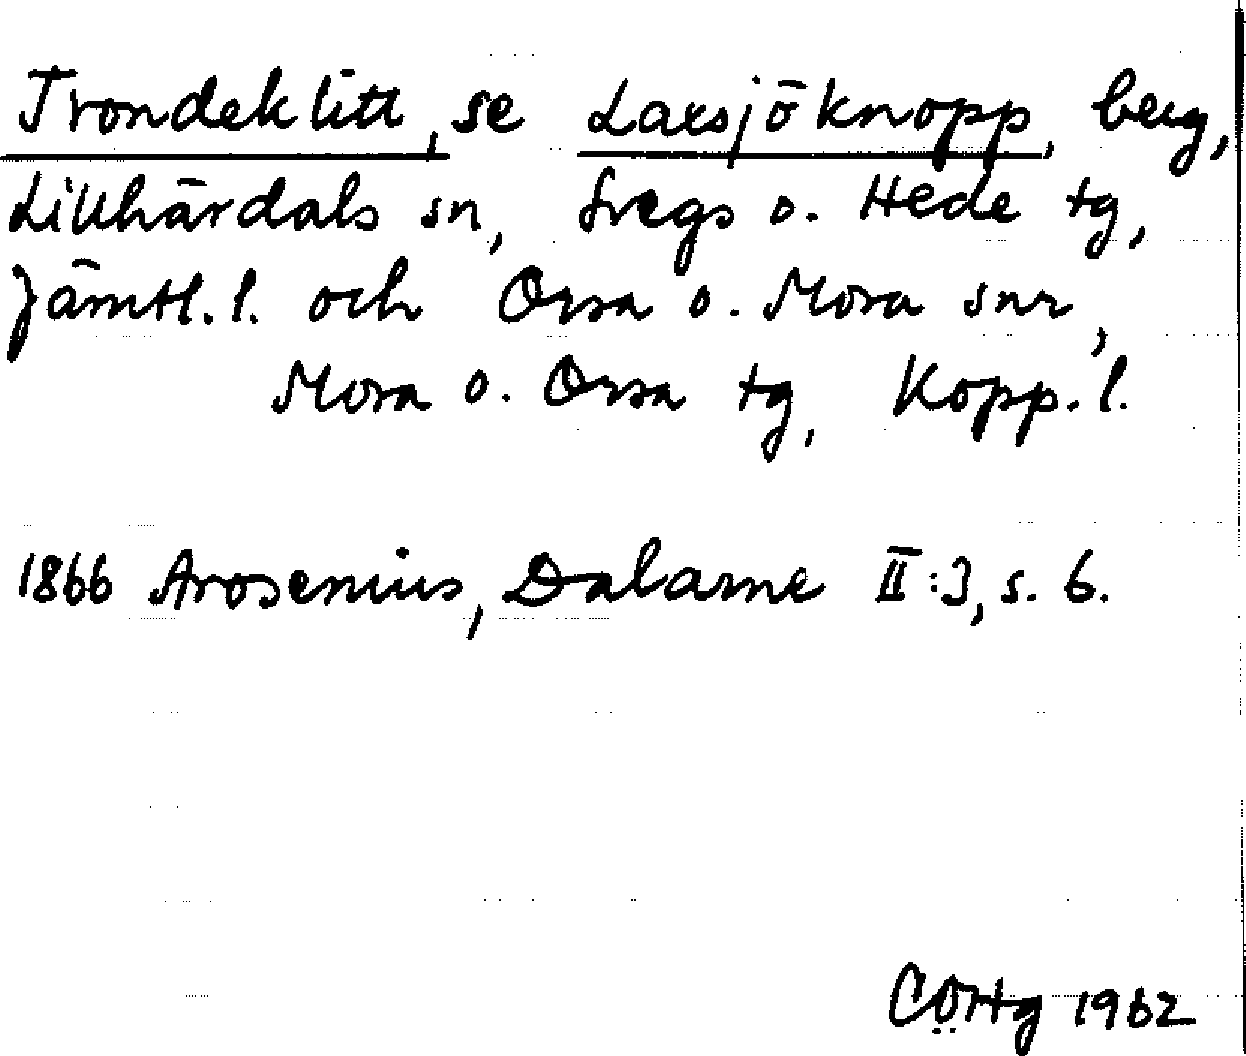 Trondeklitt, se Laxsjöknopp, berg,
Lillhärdals sn, Svegs o. Hede tg,
Jämtl. l. och Orsa o. Mora snr,
Mora o. Orsa tg, Kopp. l.
1866 Arosenius, Dalarne II:3, s. 6.
1962